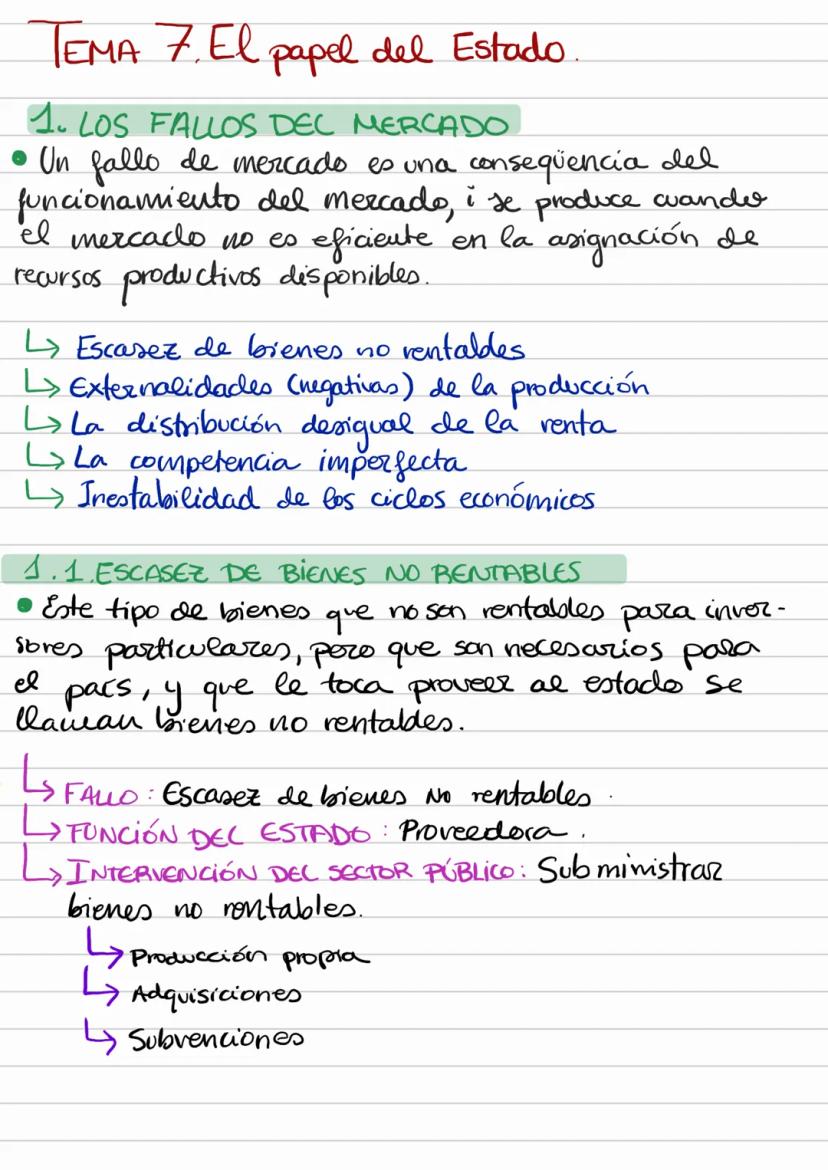 TEMA 7. El papel del Estado.
1. LOS FALLOS DEL MERCADO
• Un fallo de mercado es una conseqüencia del
funcionamiento del mercado, i se produce cuando
el mercado no es eficiente en la asignación de
recursos productivos disponibles.
↳ Escasez de bienes no rentables
↳ Externalidades (negativas) de la producción
↳ La distribución desigual de la renta
↳ La competencia imperfecta
↳ Inestabilidad de los ciclos económicos
1.1. ESCASEZ DE BIENES NO RENTABLES
• Este tipo de bienes que no son rentables para inver-
sores particulares, pero que son necesarios para
el país, y que le toca proveer al estado se
llaman bienes no rentables.
↳ FALLO: Escasez de bienes No rentables.
↳ FUNCIÓN DEL ESTADO: Proveedora.
↳ INTERVENCIÓN DEL SECTOR PÚBLICO: Subministrar
bienes no rentables.
↳ Producción propia
↳ Adquisiciones
↳ Subvenciones